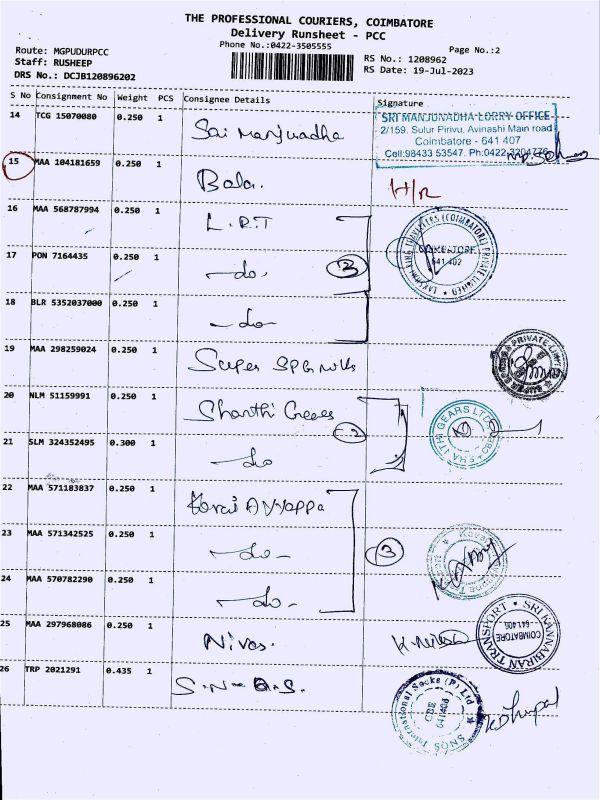 THE PROFESSIONAL COURIERS, COIMBATORE
Delivery Runsheet - PCC
Phone No.:0422-3505555
Page No.:2
Route: MGPUDURPCC
Staff: RUSHEEP
DRS No.: DCJB1208962O2
RS No.: 1208962
RS Date: 19-Jul-2023
S No Consignment No Weight PCS Consignee Details Signature
14 TCG 15070080 0.250 1 Sai Manjunadha
SRI MANJUNADHA LORRY OFFICE
2/159, Sulur Pirivu, Avinashi Main road
Coimbatore - 641 407
Cell:98433 53547. Ph:0422-3204776
15 MAA 104181659 0.250 1 Bala. H/R
16 MAA 568787994 0.250 1 L.R.T
17 PON 7164435 0.250 1 -do- 3
COIMBATORE
641 402
18 BLR 5352037000 0.250 1 -do-
19 MAA 298259024 0.250 1 Super SPG Mills
20 NLM 51159991 0.250 1 Shanthi Gears
SHANTHI GEARS LTD. CBE
21 SLM 324352495 0.300 1 -do 2
22 MAA 571183837 0.250 1 Ayyappa
23 MAA 571342525 0.250 1 -do- 3
24 MAA 570782290 0.250 1 -do-
25 MAA 297968086 0.250 1 Nivas.
SRI KANNABIRAN TRANSPORT
COIMBATORE
26 TRP 2021291 0.435 1 S.N-Q.S.
SNQS International Socks (P) Ltd
CBE
641406